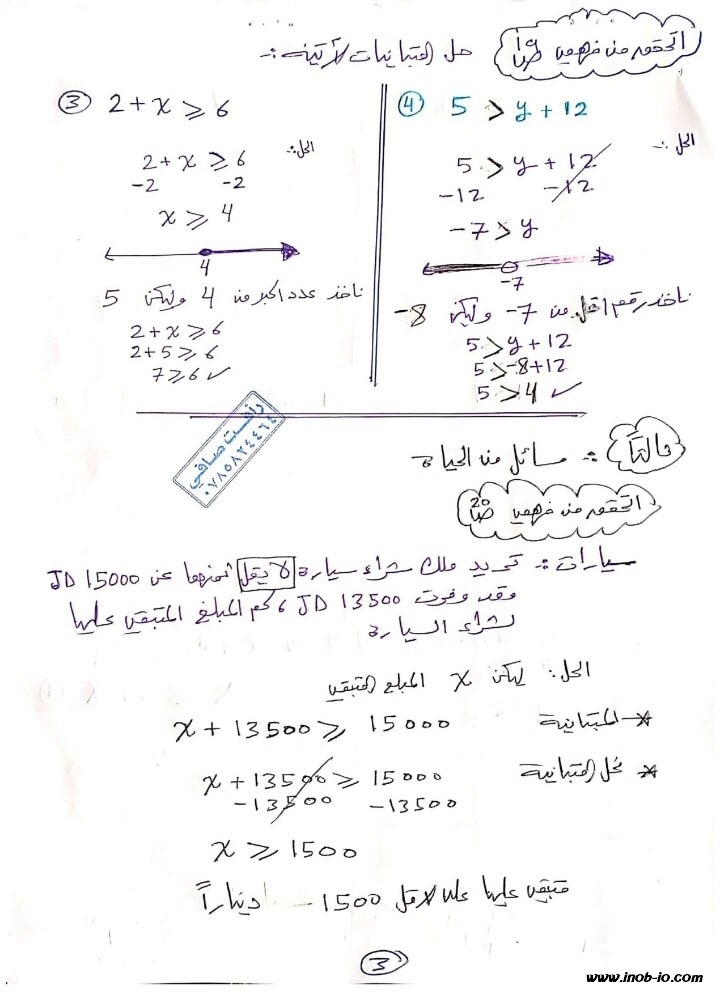 أتحقق من فهمي ص 19 حل المتباينات الآتية :-
③ 2 + x ⩾ 6
الحل :-
2 + x ⩾ 6
-2 -2
x ⩾ 4
4
نأخذ عدد اكبر من 4 وليكن 5
2 + x ⩾ 6
2 + 5 ⩾ 6
7 ⩾ 6 ✓
④ 5 > y + 12
الحل :-
5 > y + 12
-12 -12
-7 > y
-7
نأخذ رقم اقل من 7- وليكن 8-
5 > y + 12
5 > -8 + 12
5 > 4 ✓
رأفت صافي
٠٧٨٥٨٢٤٤٦٤
ثالثاً :- مسائل من الحياة
أتحقق من فهمي ص 20
سيارات :- تريد ملك شراء سيارة لا يقل ثمنها عن JD 15000
وقد وفرت JD 13500 ، كم المبلغ المتبقي عليها
لشراء السيارة
الحل : ليكن x المبلغ المتبقي
* المتباينة x + 13500 ⩾ 15000
* نحل المتباينة x + 13500 ⩾ 15000
-13500 -13500
x ⩾ 1500
متبقي عليها على الاقل 1500 ديناراً
3
www.inob-jo.com